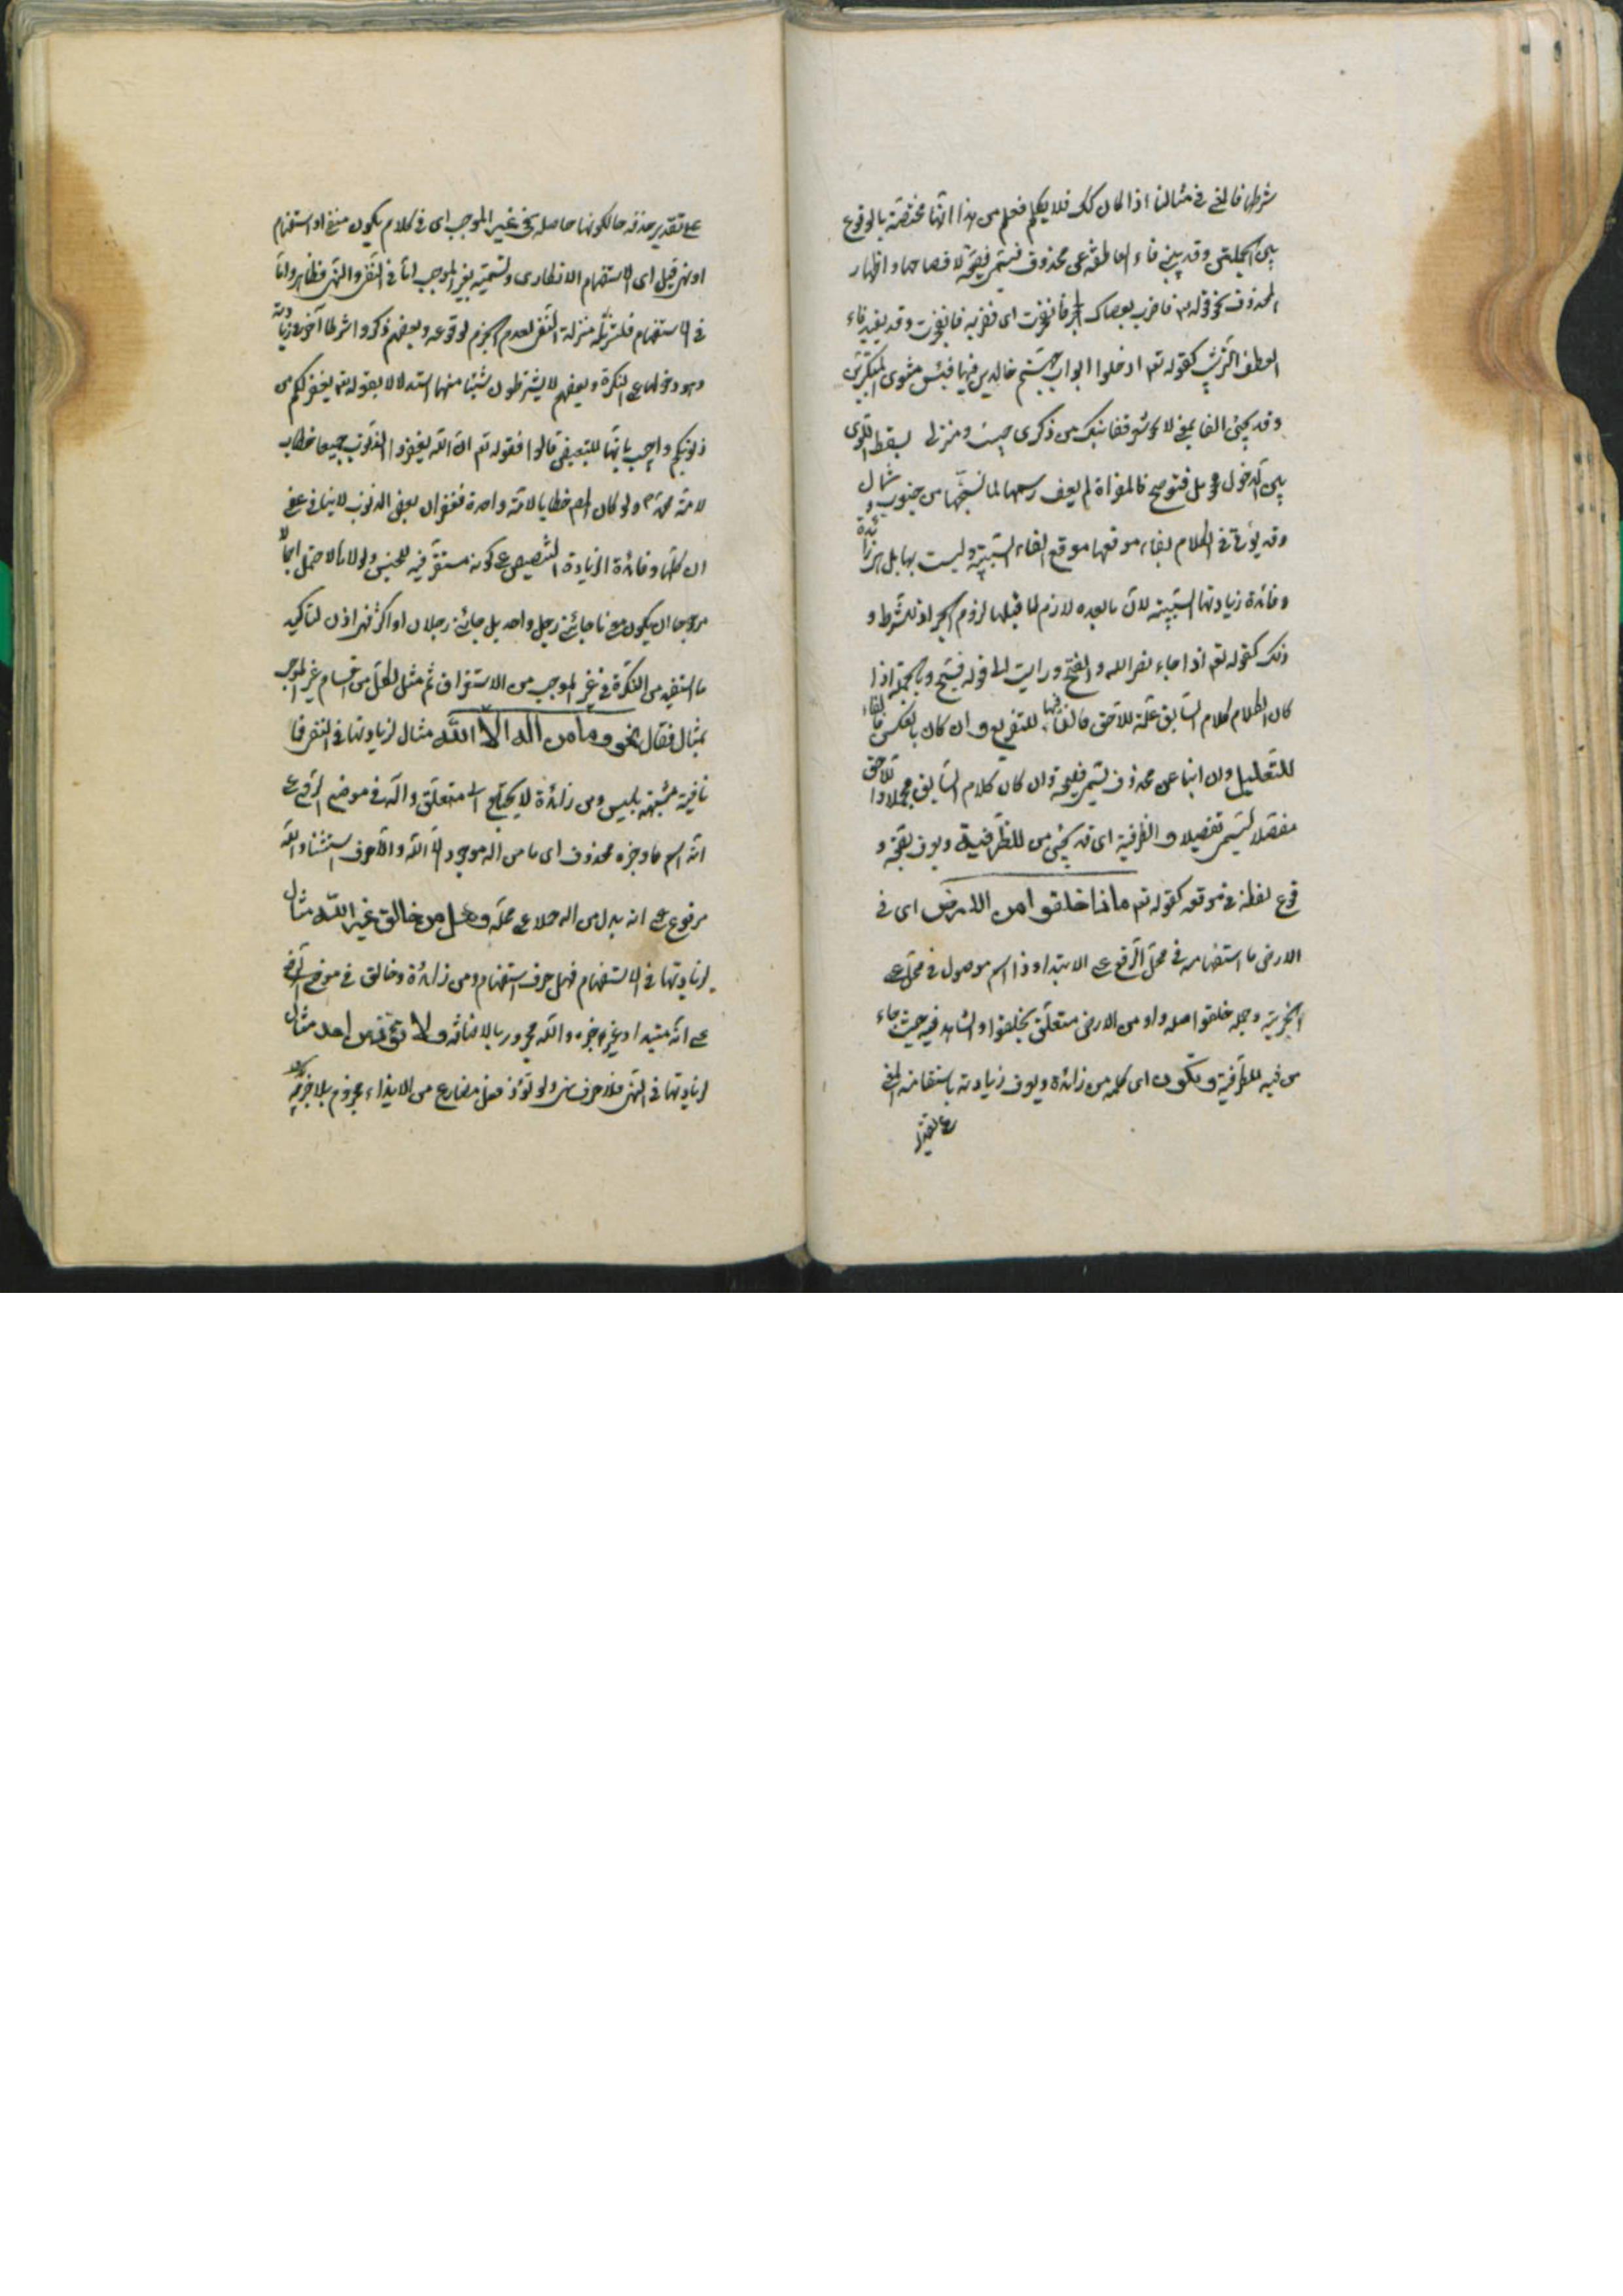 شرطها فالفي في مثالنا اذا كان كك فلا يكلم فعلم من هذا انها مختصة بالوقوع
بين الجملتين وقد ينبئ فاء العاطفة عن محذوف فتسمى فصيحة لافصاحها واظهار
المحذوف نحو قوله تع فاضرب بعصاك الحجر فانفجرت اى فضربه فانفجرت وقد يفيد فاء
العطف الترتيب كقوله تعم ادخلوا ابواب جهنم خالدين فيها فبئس مثوى المتكبرين
وقد يجئ الفا بمعنى لا كا شعر قفا نبك من ذكرى حبيب ومنزل بسقط اللوى
بين الدخول فحومل فتوضح فالمقراة لم يعف رسمها لما نسجتها من جنوب وشمال
وقد يؤتى في الكلام بفاء موقعها موقع الفاء السببية وليست بها بل هى زائدة
وفائدة زيادتها السببية لان مابعده لازم لما قبلها لزوم الجزاء للشرط و
ذلك كقوله تعم اذا جاء نصر الله والفتح ورايت الى قوله فسبح وبالجملة اذا
كان الكلام كلام السابق علة للاحق فالفاء فيها للتفريع وان كان بالعكس فالفاء
للتعليل وان انبا عن محذوف تسمى فصيحة وان كان كلام السابق مجملا واللاحق
مفصلا تسمى تفصيلا والظرفية اى قد يجئ من للظرفية ويعرف بصحة و
قوع لفظة في موقعه كقوله تعم ماذا خلقوا من الارض اى فى
الارض ما استفهامية في محل الرفع على الابتدا وذا اسم موصول في محل على
الخبرية وجملة خلقوا صلة وا و من الارض متعلق بخلقوا والشاهد فيه حيث جاء
من فيه للظرفية وتكون اى كلمة من زائدة ويعرف زيادته باستقامة المعنى
على تقدير
على تقدير حذفه حالكونها حاصلة في غير الموجب اى في كلام يكون منفى او استفهام
او نهى قيل اى الاستفهام الانكارى وتسميته بغير الموجب اما في النفى والنهى فظاهر واما
في الاستفهام فلتنزيله منزلة النفى لعدم الجزم لوقوعه وبعضهم ذكروا شرطا آخر في زيادته
وهو دخولها على النكرة وبعضهم لا يشترطون شيئا منها استدلالا بقوله تعم يغفر لكم من
ذنوبكم واجيب بانها للتبعيض قالوا فقوله تعم ان الله يغفر الذنوب جميعا خطاب
لامة محمد ولو كان لهم خطايا لامة واحدة فغفران بعض الذنوب لاينافي عفو
ان كلها وفائدة الزيادة التنصيص على كونه مستغرقيه للجنس ولولاها لاحتمل احتمالا
مرجوحا ان يكون معنى ما جائنى رجل واحد بل جائنى رجلان او اكثر فهى اذن لتاكيد
ما استفيد من النكرة في غير الموجب من الاستغراق ثم مثل لكل من اقسام غير الموجب
بمثال فقال نحو وما من اله الا الله مثال لزيادتها في النفى فما
نافية مشبهة بليس ومن زائدة لا يحتاج الى متعلق واله في موضع الرفع على
انه اسم ما وخبره محذوف اى ما من اله موجود الا الله والا حرف استثناء والله
مرفوع على انه بدل من اله حملا على محله وهل من خالق غير الله مثال
لزيادتها في الاستفهام فهل حرف استفهام ومن زائدة وخالق في موضع الرفع
على انه مبتدا وغير خبره والله مجرور بالاضافة ولا تؤذ من احد مثال
لزيادتها في النهى فلا حرف نهى ولو تؤذ فعل مضارع من الايذاء مجزوم بلا